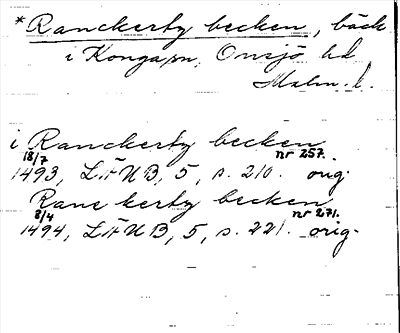 *Ranckerty becken, bäck
i Konga sn, Onsjö hd
Malm. l.
i Ranckerty becken
18/7 nr 257.
1493, LÄUB, 5, s. 210. orig.
Ranckerty becken
8/4 nr 271.
1494, LÄUB, 5, s. 221. orig.